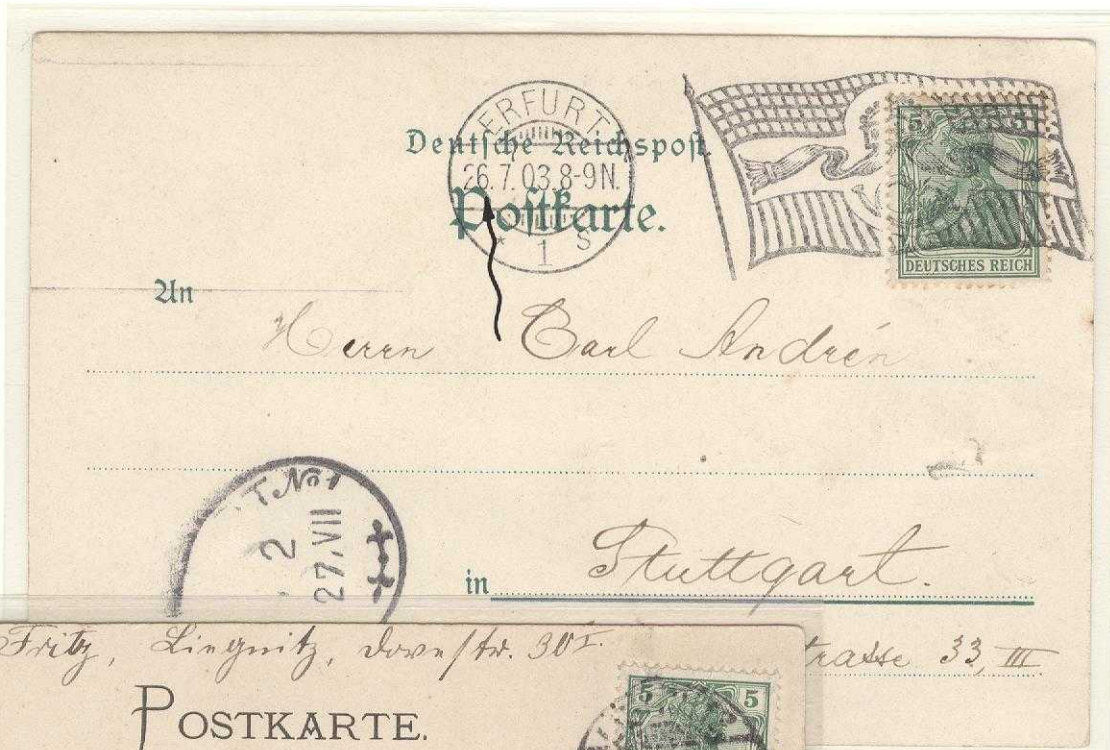 ERFURT
Deutsche Reichspost.
26.7.03.8-9N.
Postkarte.
* 1 S
5
DEUTSCHES REICH
An
Herrn Carl Andrén
T.No1
2
27.VII
in Stuttgart.
trasse 33, III
Fritz, Liegnitz, Dovestr. 30 I.
5 5
POSTKARTE.